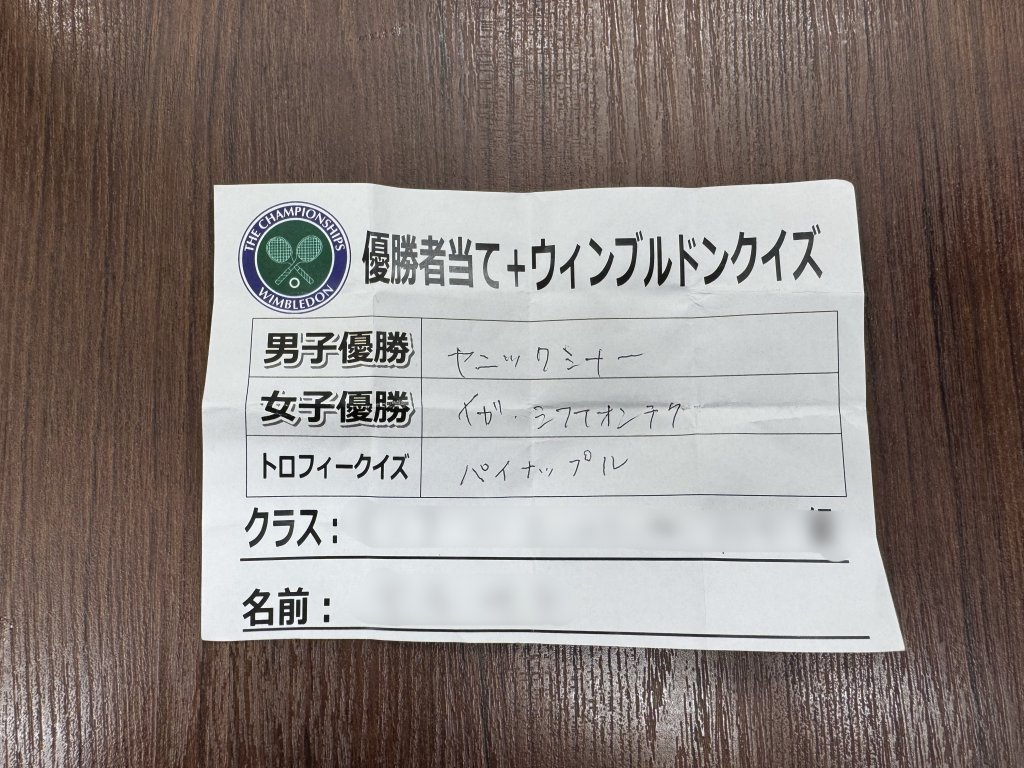 THE CHAMPIONSHIPS
WIMBLEDON
優勝者当て+ウィンブルドンクイズ
男子優勝 ヤニックシナー
女子優勝 イガ・シフテオンテク
トロフィークイズ パイナップル
クラス:
名前: